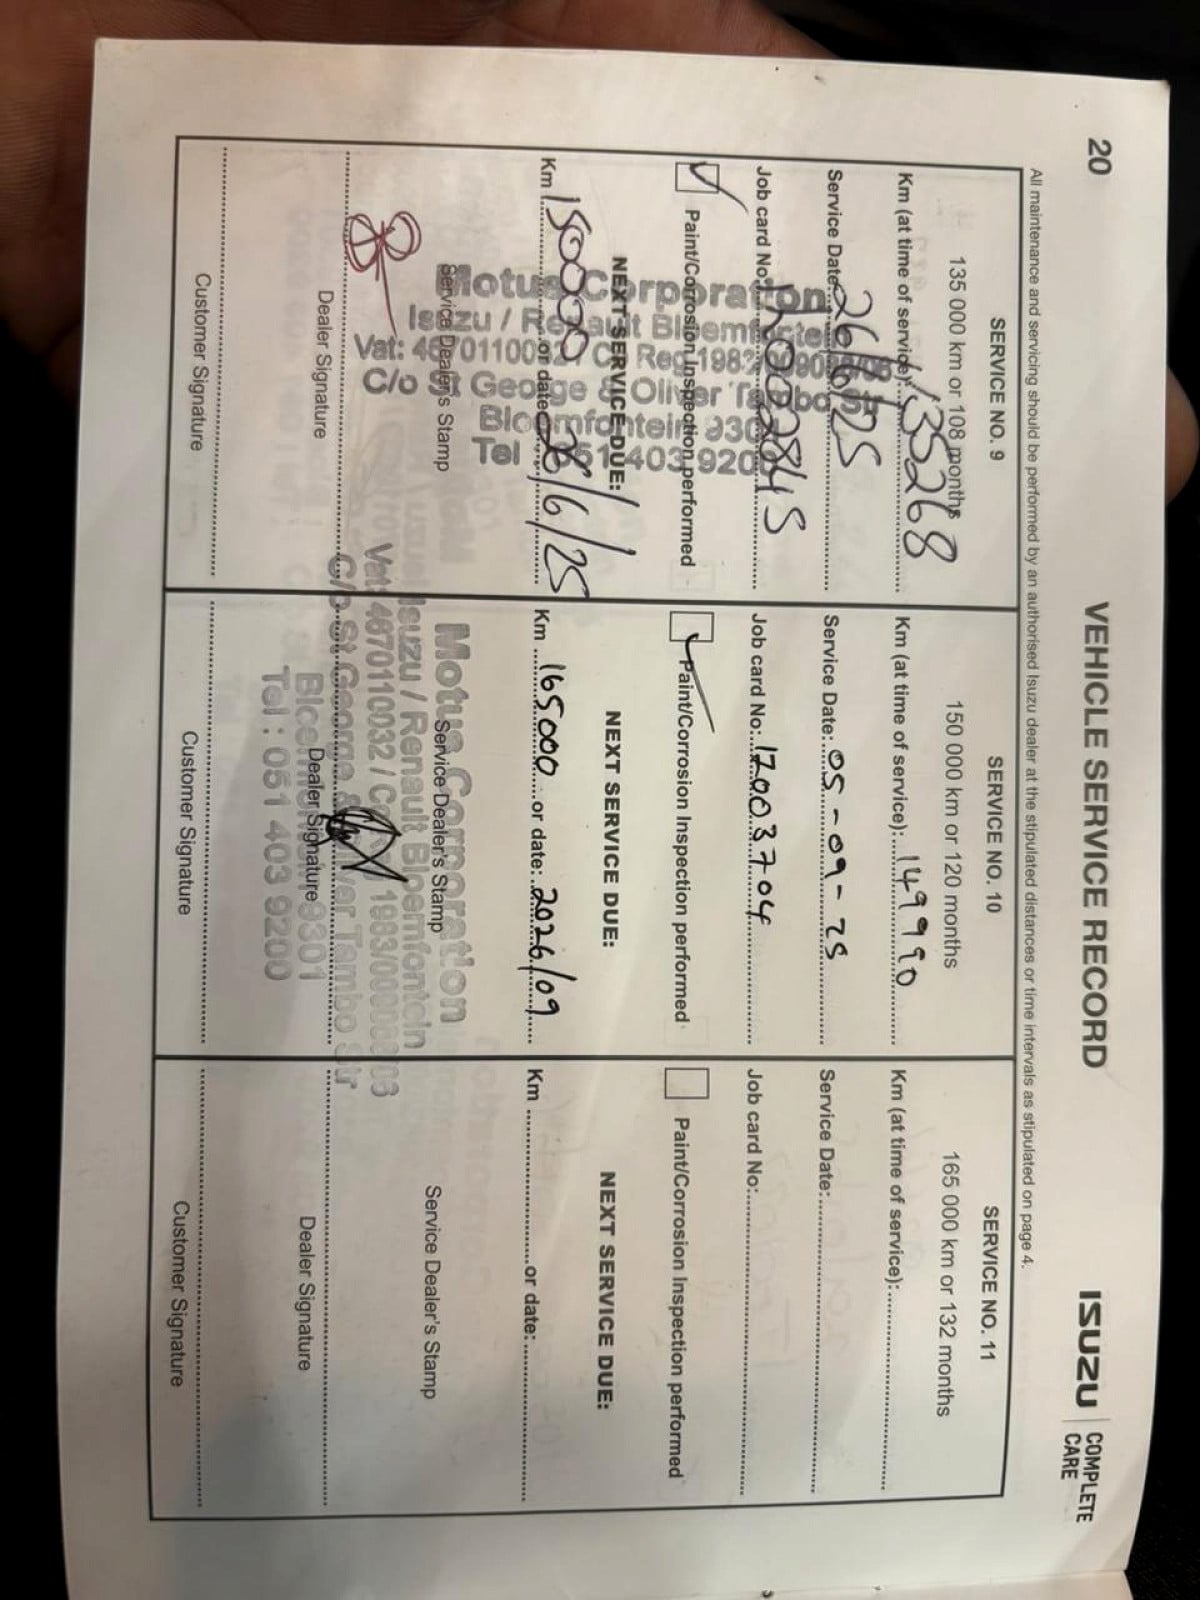 20
VEHICLE SERVICE RECORD
ISUZU | COMPLETE CARE
All maintenance and servicing should be performed by an authorised Isuzu dealer at the stipulated distances or time intervals as stipulated on page 4.
SERVICE NO. 9
135 000 km or 108 months
Km (at time of service): 135268
Service Date: 26/6/25
Job card No:
Paint/Corrosion Inspection performed
NEXT SERVICE DUE:
Km 150000 or date: 26/6/25
Motus Corporation
Isuzu / Renault Bloemfontein
C/o St George & Oliver Tambo Str
Bloemfontein 9301
Tel : 051 403 9200
Service Dealer's Stamp
Dealer Signature
Customer Signature
SERVICE NO. 10
150 000 km or 120 months
Km (at time of service): 149990
Service Date: 05-09-25
Job card No: 17003704
Paint/Corrosion Inspection performed
NEXT SERVICE DUE:
Km 165000 or date: 2026/09
Motus Corporation
Service Dealer's Stamp
Isuzu / Renault Bloemfontein
Vat: 4670110032 /
C/o St George & Oliver Tambo Str
Dealer Signature
Bloemfontein 9301
Tel : 051 403 9200
Customer Signature
SERVICE NO. 11
165 000 km or 132 months
Km (at time of service):
Service Date:
Job card No:
Paint/Corrosion Inspection performed
NEXT SERVICE DUE:
Km or date:
Service Dealer's Stamp
Dealer Signature
Customer Signature